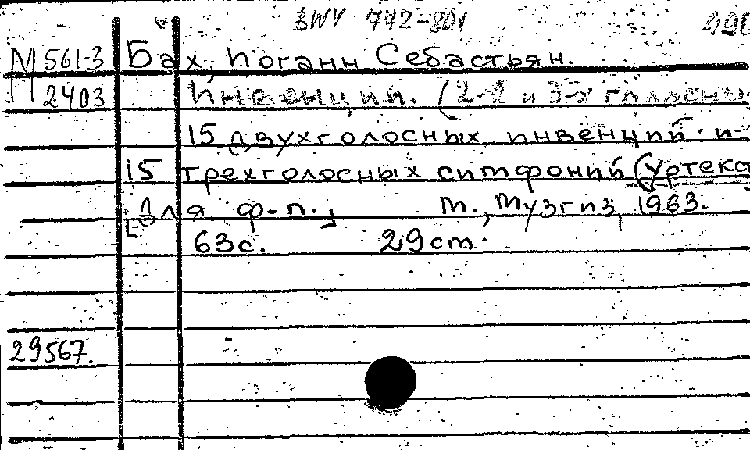 BWV 772-801
М 561-3 Бах, Иоганн Себастьян.
2403 Инвенции. (2-х и 3-х голосны
15 двухголосных инвенций и
15 трехголосных симфоний (Уртекс
[Для ф-п.]
М., Музгиз, 1963.
63с. 29см.
29567.